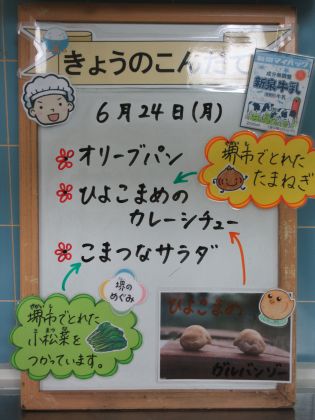 きょうのこんだて
新泉牛乳
6月24日(月)
オリーブパン
ひよこまめの
カレーシチュー
こまつなサラダ
堺市でとれた
たまねぎ
堺の
めぐみ
堺市でとれた
小松菜を
つかっています。
ひよこまめ
ガルバンゾー